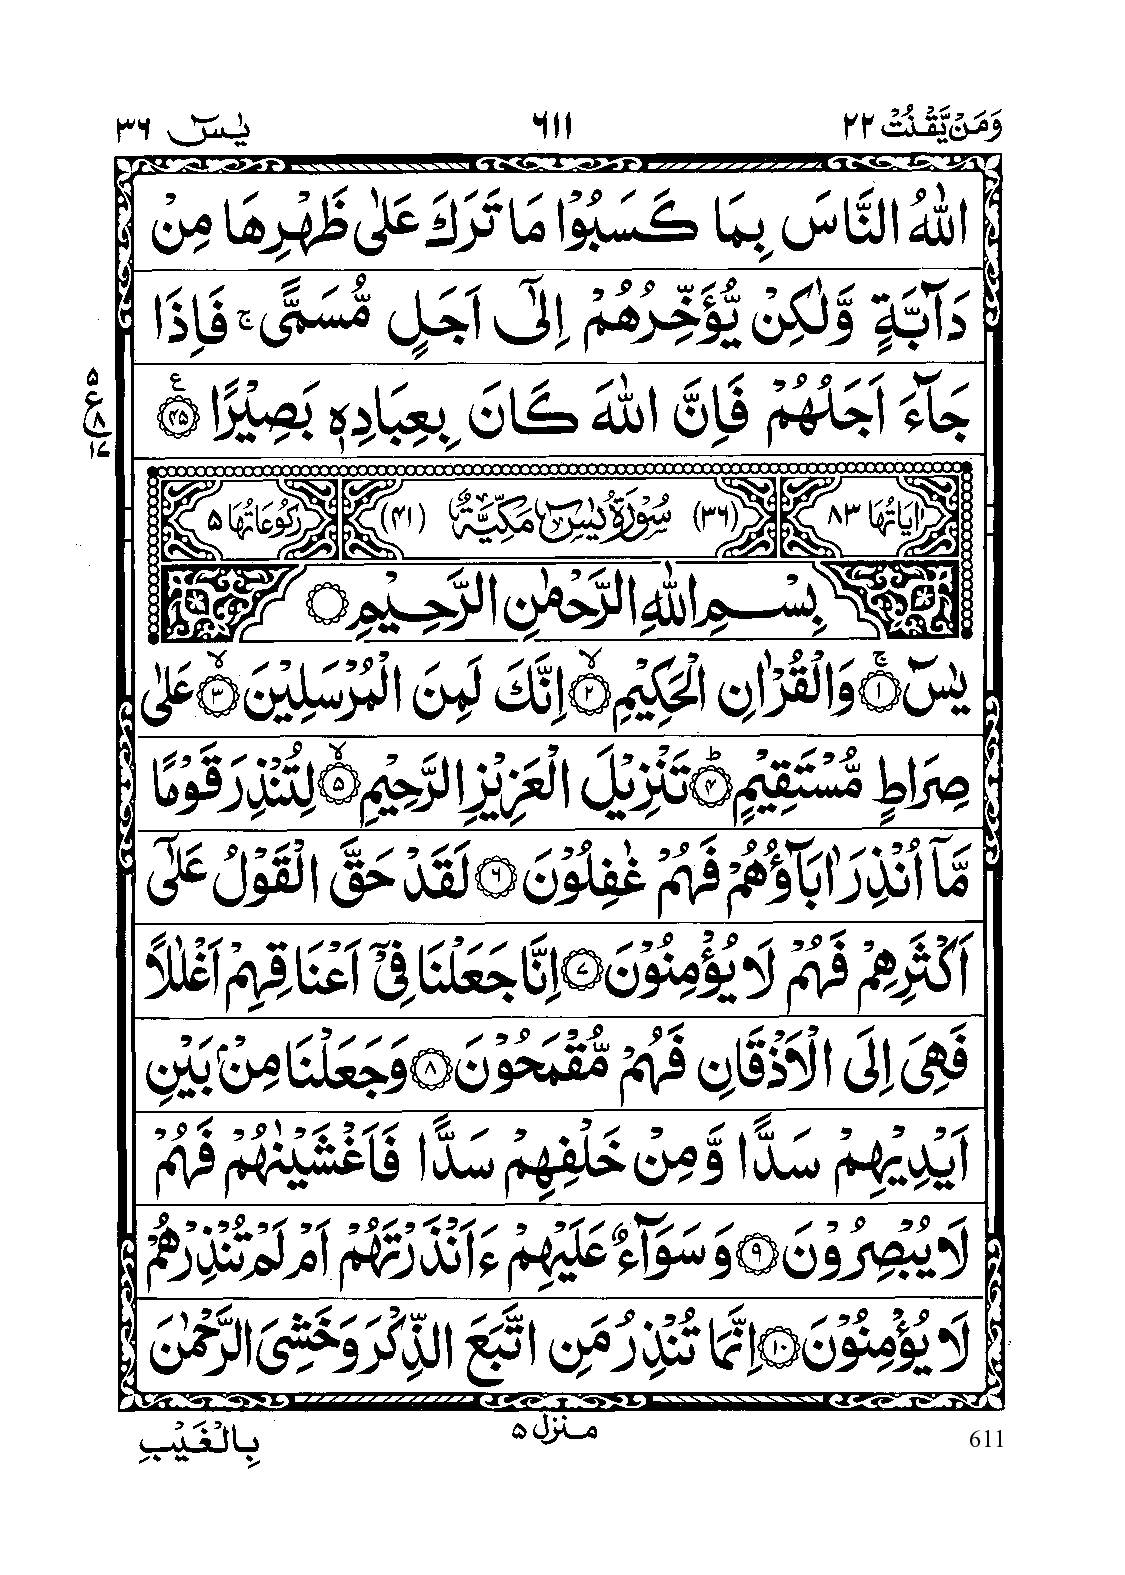 وَمَنْ يَّقْنُتْ ٢٢ ٦١١ يٰسٓ ٣٦
اللّٰهُ النَّاسَ بِمَا كَسَبُوْا مَا تَرَكَ عَلٰى ظَهْرِهَا مِنْ
دَآبَّةٍ وَّلٰكِنْ يُّؤَخِّرُهُمْ اِلٰٓى اَجَلٍ مُّسَمًّى ۚ فَاِذَا
جَآءَ اَجَلُهُمْ فَاِنَّ اللّٰهَ كَانَ بِعِبَادِهٖ بَصِيْرًا ﴿۴۵﴾ ع
۵
ع
۸
۱۷
اٰيَاتُهَا ٨٣ (٣٦) سُوْرَةُ يٰسٓ مَكِّيَّةٌ (۴۱) رُكُوْعَاتُهَا ۵
بِسْمِ اللّٰهِ الرَّحْمٰنِ الرَّحِيْمِ
يٰسٓ ﴿۱﴾ۚ وَالْقُرْاٰنِ الْحَكِيْمِ ﴿۲﴾ۙ اِنَّكَ لَمِنَ الْمُرْسَلِيْنَ ﴿۳﴾ۙ عَلٰى
صِرَاطٍ مُّسْتَقِيْمٍ ﴿۴﴾ؕ تَنْزِيْلَ الْعَزِيْزِ الرَّحِيْمِ ﴿۵﴾ۙ لِتُنْذِرَ قَوْمًا
مَّآ اُنْذِرَ اٰبَآؤُهُمْ فَهُمْ غٰفِلُوْنَ ﴿۶﴾ لَقَدْ حَقَّ الْقَوْلُ عَلٰٓى
اَكْثَرِهِمْ فَهُمْ لَا يُؤْمِنُوْنَ ﴿۷﴾ اِنَّا جَعَلْنَا فِيْٓ اَعْنَاقِهِمْ اَغْلٰلًا
فَهِيَ اِلَى الْاَذْقَانِ فَهُمْ مُّقْمَحُوْنَ ﴿۸﴾ وَجَعَلْنَا مِنْۢ بَيْنِ
اَيْدِيْهِمْ سَدًّا وَّمِنْ خَلْفِهِمْ سَدًّا فَاَغْشَيْنٰهُمْ فَهُمْ
لَا يُبْصِرُوْنَ ﴿۹﴾ وَسَوَآءٌ عَلَيْهِمْ ءَاَنْذَرْتَهُمْ اَمْ لَمْ تُنْذِرْهُمْ
لَا يُؤْمِنُوْنَ ﴿۱۰﴾ اِنَّمَا تُنْذِرُ مَنِ اتَّبَعَ الذِّكْرَ وَخَشِيَ الرَّحْمٰنَ
منزل ۵
بِالْغَيْبِ
611